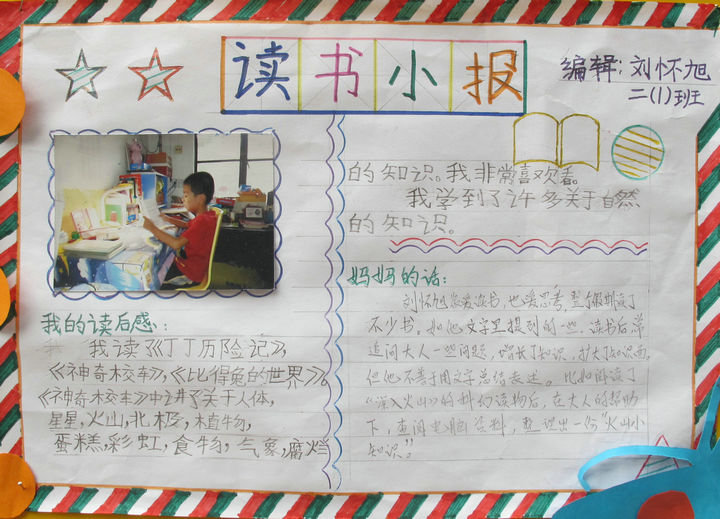 读书小报
编辑：刘怀旭
二(1)班
我的读后感：
我读了《丁丁历险记》，
《神奇校车》，《比得兔的世界》。
《神奇校车》中讲了关于人体，
星星，火山，北极，植物，
蛋糕，彩虹，食物，气象，腐烂
的知识。我非常喜欢看。
我学到了许多关于自然
的知识。
妈妈的话：
刘怀旭爱读书，也爱思考，整个假期读了
不少书。如他文字里提到的一些。读书后，常
追问大人一些问题，增长了知识，扩大了知识面，
但他不善于用文字总结表述。比如阅读了
“深入火山”的科幻读物后，在大人的帮助
下，查阅电脑资料，整理出一份“火山小
知识”。